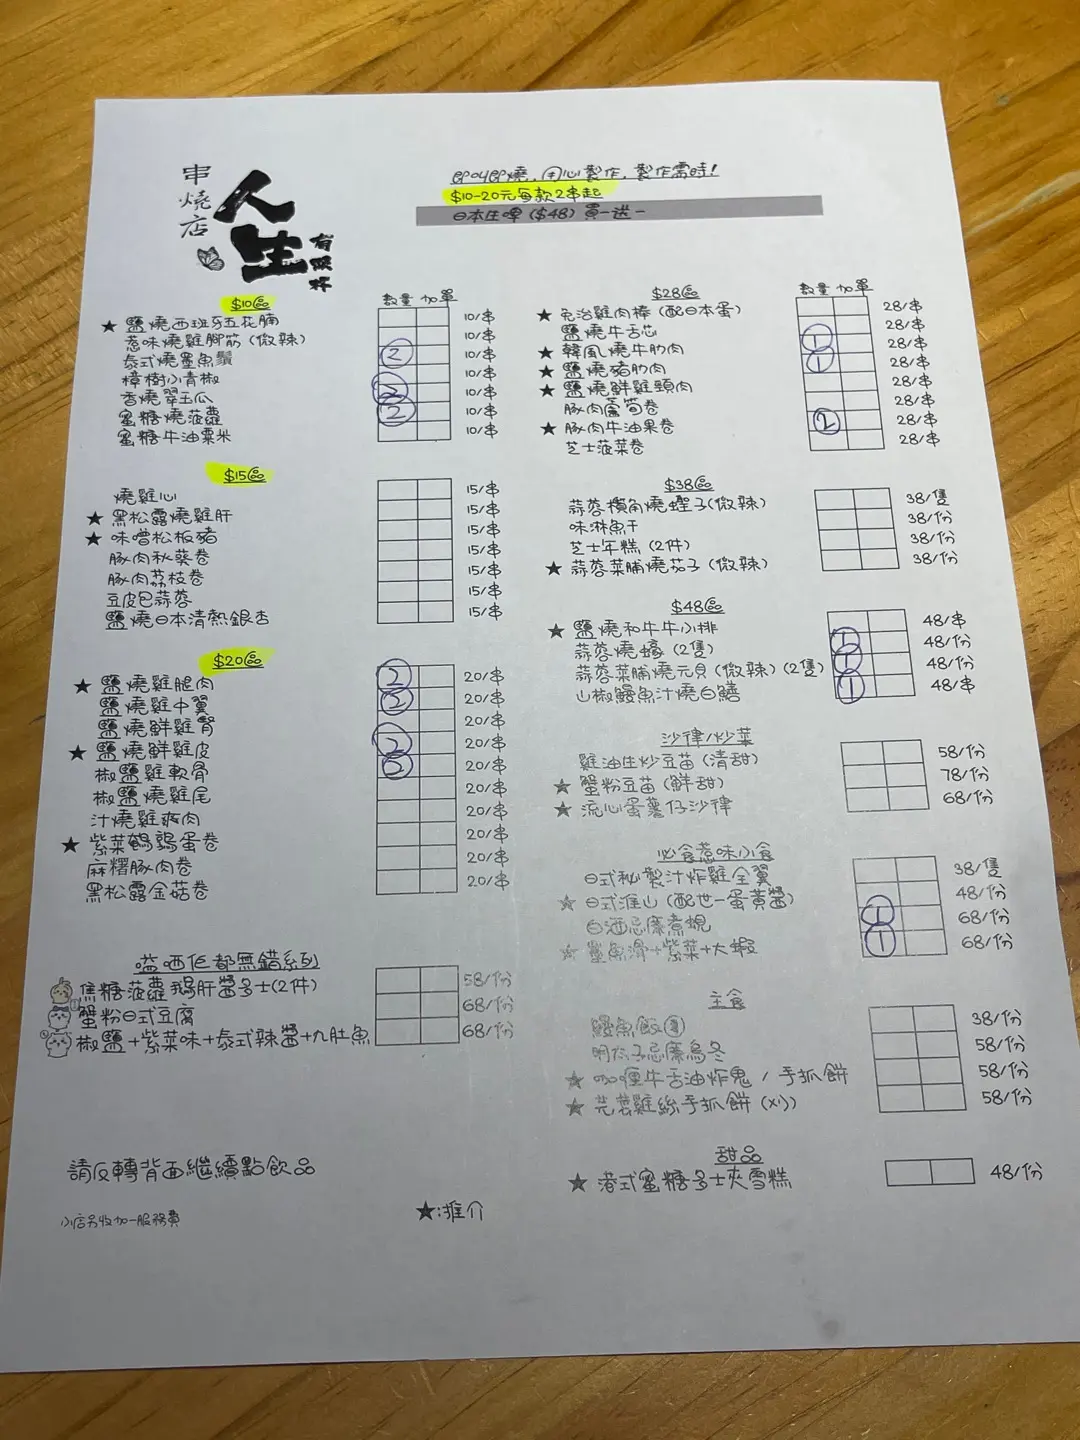 串燒店
人生有限杯
即叫即燒，用心製作，製作需時！
$10-20元每款2串起
日本生啤 ($48) 買一送一
$10區
數量 加單
★ 鹽燒西班牙五花腩 10/串
惹味燒雞腳筋 (微辣) 10/串
泰式燒墨魚鬚 2 10/串
樟樹小青椒 10/串
香燒翠玉瓜 2 10/串
蜜糖燒菠蘿 2 10/串
蜜糖牛油粟米 10/串
$15區
燒雞心 15/串
★ 黑松露燒雞肝 15/串
★ 味噌松板豬 15/串
豚肉秋葵卷 15/串
豚肉荔枝卷 15/串
豆皮包蒜蓉 15/串
鹽燒日本清熱銀杏 15/串
$20區
★ 鹽燒雞腿肉 2 20/串
鹽燒雞中翼 2 20/串
鹽燒鮮雞腎 20/串
★ 鹽燒鮮雞皮 2 20/串
椒鹽雞軟骨 2 20/串
椒鹽燒雞尾 20/串
汁燒雞爽肉 20/串
★ 紫菜鵪鶉蛋卷 20/串
麻糬豚肉卷 20/串
黑松露金菇卷 20/串
嗌哂佢都無錯系列
焦糖菠蘿鵝肝醬多士(2件) 58/份
蟹粉日式豆腐 68/份
椒鹽+紫菜味+泰式辣醬+九肚魚 68/份
請反轉背面繼續點飲品
小店另收加一服務費
★:推介
$28區
數量 加單
★ 免治雞肉棒 (配日本蛋) 28/串
鹽燒牛舌芯 1 28/串
★ 韓風燒牛肋肉 1 28/串
★ 鹽燒豬肋肉 28/串
★ 鹽燒鮮雞頸肉 28/串
豚肉蘆筍卷 2 28/串
★ 豚肉牛油果卷 28/串
芝士菠菜卷 28/串
$38區
蒜蓉檳角燒蟶子(微辣) 38/隻
味淋魚干 38/份
芝士年糕 (2件) 38/份
★ 蒜蓉菜脯燒茄子 (微辣) 38/份
$48區
★ 鹽燒和牛牛小排 48/串
蒜蓉燒蠔 (2隻) 1 48/份
蒜蓉菜脯燒元貝 (微辣) (2隻) 1 48/份
山椒鰻魚汁燒白鱔 1 48/串
沙律/炒菜
雞油生炒豆苗 (清甜) 58/份
★ 蟹粉豆苗 (鮮甜) 78/份
★ 流心蛋薯仔沙律 68/份
必食惹味小食
日式秘製汁炸雞全翼 38/隻
★ 日式淮山 (配世一蛋黃醬) 48/份
白酒忌廉煮蜆 1 68/份
★ 鯊魚滑+紫菜+大蝦 1 68/份
主食
鰻魚飯 38/份
明太子忌廉烏冬 58/份
★ 咖喱牛舌油炸鬼 / 手抓餅 58/份
★ 芫荽雞絲手抓餅 (刈) 58/份
甜品
★ 港式蜜糖多士夾雪糕 48/份